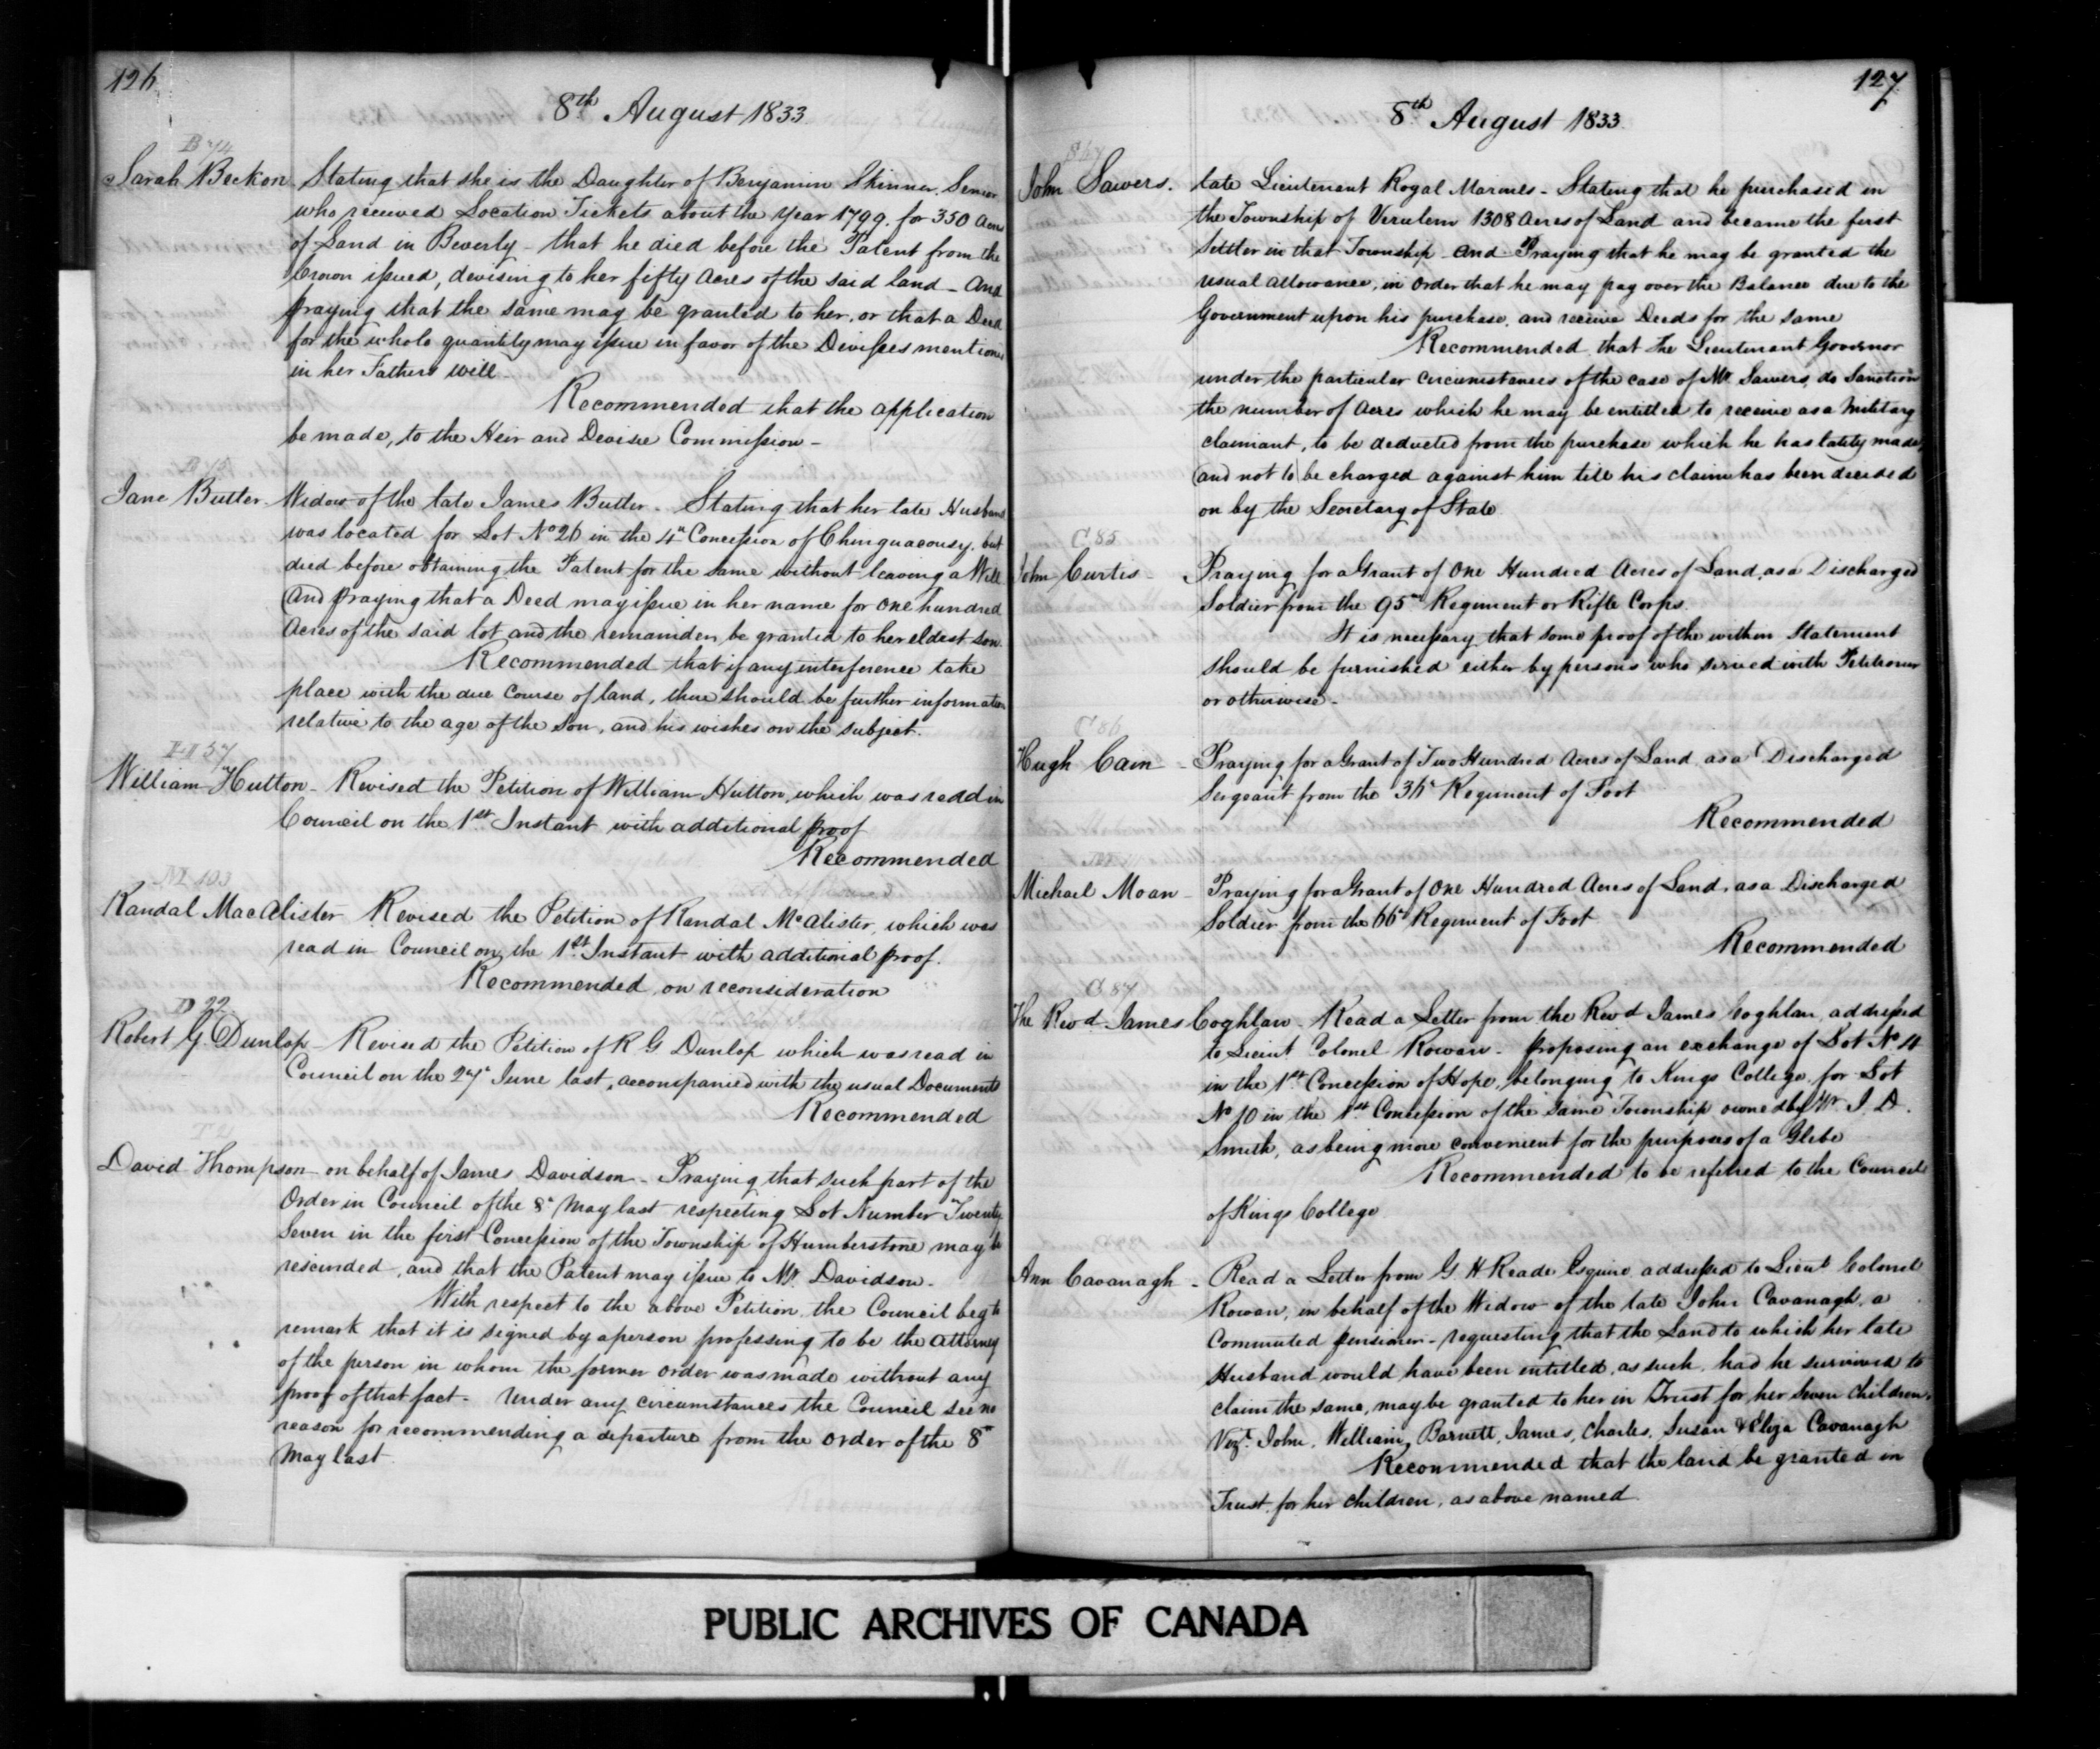 126
8th August 1833
B 74
Sarah Beckon. Stating that she is the Daughter of Benjamin Skinner, Senior
who received Location Tickets about the Year 1799. for 350 Acres
of Land in Beverly - that he died before the Patent from the
Crown issued, devising to her fifty Acres of the said land - And
praying that the same may be granted to her, or that a Deed
for the whole quantity may issue in favor of the Devisees mentioned
in her Fathers will -
Recommended that the application
be made, to the Heir and Devisee Commission -
Jane Butler. Widow of the late James Butler. Stating that her late Husband
was located for Lot No 26 in the 4th Concession of Chinguacousy, but
died before obtaining the Patent for the same without leaving a Will
And praying that a Deed may issue in her name for one hundred
Acres of the said lot and the remainder, be granted to her eldest son.
Recommended that if any interference take
place with the due Course of land, there should be further information
relative to the age of the Son, and his wishes on the subject.
H 37
William Hutton - Revised the Petition of William Hutton, which was read in
Council on the 1st Instant with additional proof
Recommended
M 103
Randal MacAlister Revised the Petition of Randal McAlister, which was
read in Council on the 1st Instant with additional proof.
Recommended on reconsideration
D 22
Robert G. Dunlop - Revised the Petition of R G Dunlop which was read in
Council on the 27th June last, accompanied with the usual Documents
Recommended
David Thompson on behalf of James Davidson - Praying that such part of the
Order in Council of the 8th May last respecting Lot Number Twenty
Seven in the first Concession of the Township of Humberstone may be
rescinded, and that the Patent may issue to Mr. Davidson -
With respect to the above Petition the Council beg to
remark that it is signed by a person professing to be the Attorney
of the person in whom the former order was made without any
proof of that fact - Under any circumstances the Council see no
reason for recommending a departure from the order of the 8th
May last.
127
8th August 1833.
John Sawers. late Lieutenant Royal Marines - Stating that he purchased in
the Township of Verulem 1308 Acres of Land and became the first
Settler in that Township - And Praying that he may be granted the
usual allowance, in order that he may pay over the Balance due to the
Government upon his purchase, and receive Deeds for the same
Recommended that the Lieutenant Governor
under the particular circumstances of the case of Mr Sawers, do Sanction
the number of Acres which he may be entitled to receive as a Military
claimant, to be deducted from the purchase which he has lately made,
and not to be charged against him till his claim has been decided
on by the Secretary of State
C 85
John Curtis - Praying for a Grant of One Hundred Acres of Land, as a Discharged
Soldier from the 95th Regiment or Rifle Corps.
It is necessary that some proof of the within Statement
should be furnished either by persons who served with Petitioner
or otherwise -
C 86
Hugh Cain - Praying for a Grant of Two Hundred Acres of Land as a Discharged
Sergeant from the 36th Regiment of Foot
Recommended
Michael Moan - Praying for a Grant of One Hundred Acres of Land, as a Discharged
Soldier from the 66th Regiment of Foot
Recommended
C 87
The Revd. James Coghlan - Read a Letter from the Revd James Coghlan, addressed
to Lieut Colonel Rowan - proposing an exchange of Lot No 4
in the 1st Concession of Hope, belonging to Kings College, for Lot
No 10 in the 1st Concession of the same Township owned by Mr J. D.
Smith, as being more convenient for the purposes of a Glebe
Recommended to be referred to the Council
of Kings College
Ann Cavanagh - Read a Letter from G H Reade Esquire addressed to Lieut Colonel
Rowan, in behalf of the Widow of the late John Cavanagh, a
Commuted pensioner - requesting that the Land to which her late
Husband would have been entitled, as such, had he survived to
claim the same, may be granted to her in Trust for her Seven children,
Vizt. John, William, Barnett, James, Charles, Susan & Eliza Cavanagh
Recommended that the land be granted in
Trust, for her children, as above named.
PUBLIC ARCHIVES OF CANADA